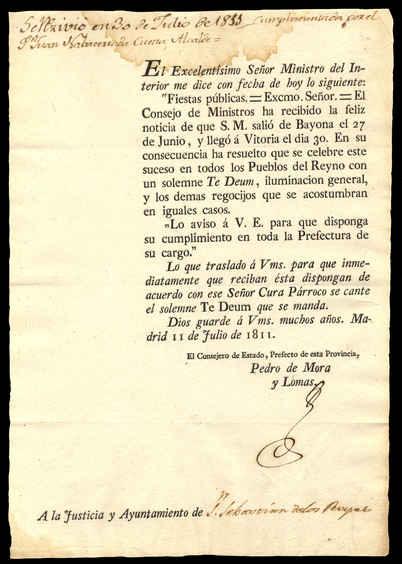 Se Recivio en 30 de Julio de 1811 Cumplimentose por el
Sr. Juan Cuesta Alcalde =
El Excelentísimo Señor Ministro del In-
terior me dice con fecha de hoy lo siguiente:
"Fiestas públicas. = Excmo. Señor. = El
Consejo de Ministros ha recibido la feliz
noticia de que S. M. salió de Bayona el 27
de Junio, y llegó á Vitoria el dia 30. En su
consecuencia ha resuelto que se celebre este
suceso en todos los Pueblos del Reyno con
un solemne Te Deum, iluminacion general,
y los demas regocijos que se acostumbran
en iguales casos.
"Lo aviso á V. E. para que disponga
su cumplimiento en toda la Prefectura de
su cargo."
Lo que traslado á Vms. para que inme-
diatamente que reciban ésta dispongan de
acuerdo con ese Señor Cura Párroco se cante
el solemne Te Deum que se manda.
Dios guarde á Vms. muchos años. Ma-
drid 11 de Julio de 1811.
El Consejero de Estado, Prefecto de esta Provincia,
Pedro de Mora
y Lomas.
A la Justicia y Ayuntamiento de Sn. Sebastian de los Reyes